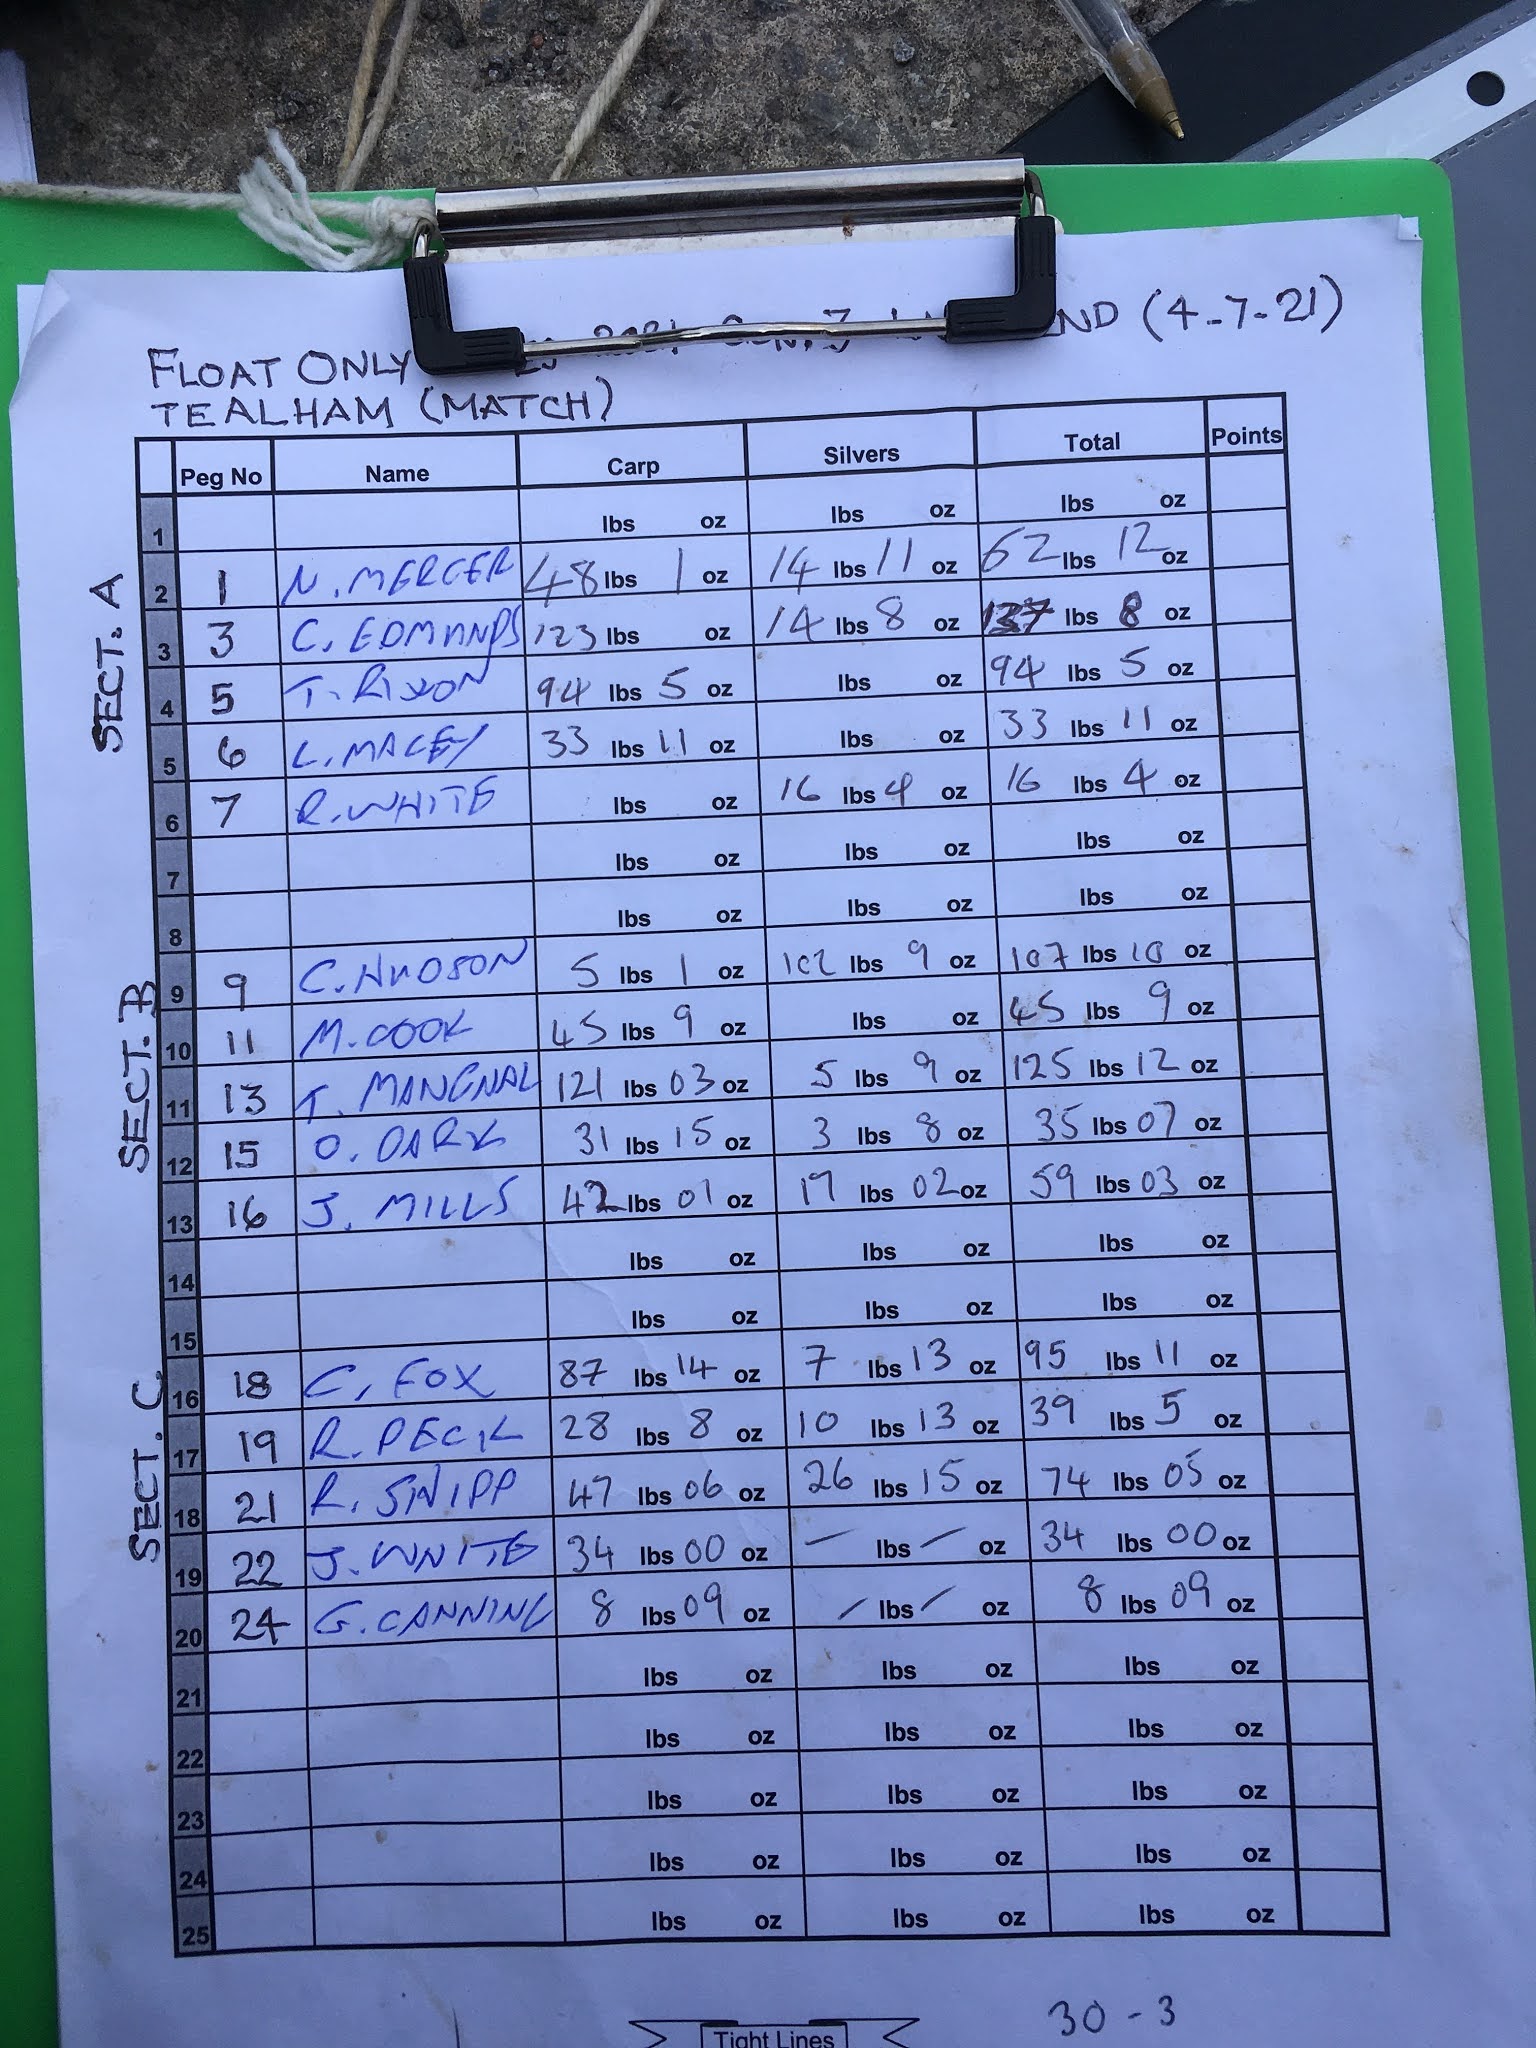 FLOAT ONLY 2021 ND (4-7-21)
TEALHAM (MATCH)
Peg No Name Carp Silvers Total Points
1 lbs oz lbs oz lbs oz
SECT. A
2 1 N. MERCER 48 lbs 1 oz 14 lbs 11 oz 62 lbs 12 oz
3 3 C. EDMUNDS 123 lbs oz 14 lbs 8 oz 137 lbs 8 oz
4 5 T. RIXON 94 lbs 5 oz lbs oz 94 lbs 5 oz
5 6 L. MACEY 33 lbs 11 oz lbs oz 33 lbs 11 oz
6 7 R. WHITE lbs oz 16 lbs 4 oz 16 lbs 4 oz
7 lbs oz lbs oz lbs oz
8 lbs oz lbs oz lbs oz
SECT. B
9 9 C. HUDSON 5 lbs 1 oz 102 lbs 9 oz 107 lbs 10 oz
10 11 M. COOK 45 lbs 9 oz lbs oz 45 lbs 9 oz
11 13 T. MANGNAL 121 lbs 03 oz 5 lbs 9 oz 125 lbs 12 oz
12 15 O. DARK 31 lbs 15 oz 3 lbs 8 oz 35 lbs 07 oz
13 16 J. MILLS 42 lbs 01 oz 17 lbs 02 oz 59 lbs 03 oz
14 lbs oz lbs oz lbs oz
15 lbs oz lbs oz lbs oz
SECT. C
16 18 C. FOX 87 lbs 14 oz 7 lbs 13 oz 95 lbs 11 oz
17 19 R. PECK 28 lbs 8 oz 10 lbs 13 oz 39 lbs 5 oz
18 21 R. SNIPP 47 lbs 06 oz 26 lbs 15 oz 74 lbs 05 oz
19 22 J. WHITE 34 lbs 00 oz – lbs – oz 34 lbs 00 oz
20 24 G. CANNING 8 lbs 09 oz – lbs – oz 8 lbs 09 oz
21 lbs oz lbs oz lbs oz
22 lbs oz lbs oz lbs oz
23 lbs oz lbs oz lbs oz
24 lbs oz lbs oz lbs oz
25 lbs oz lbs oz lbs oz
30 - 3
Tight Lines